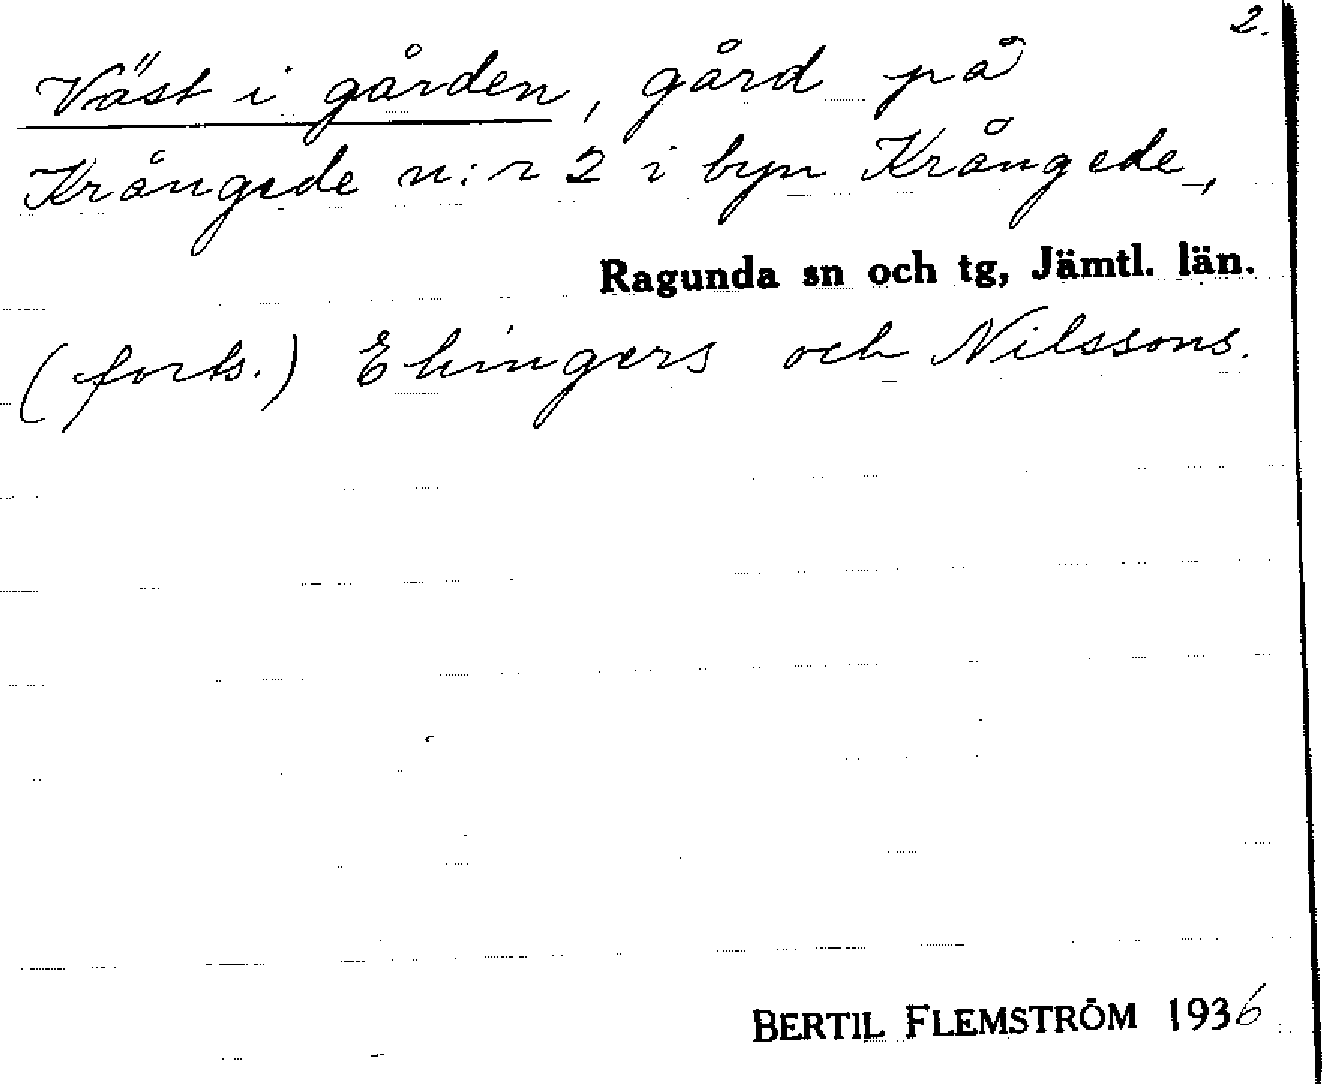 2.
Väst i gården, gård på
Krångede n:r 2 i byn Krångede,
Ragunda sn och tg, Jämtl. län.
(forts.) och Nilssons.
BERTIL FLEMSTRÖM 1936